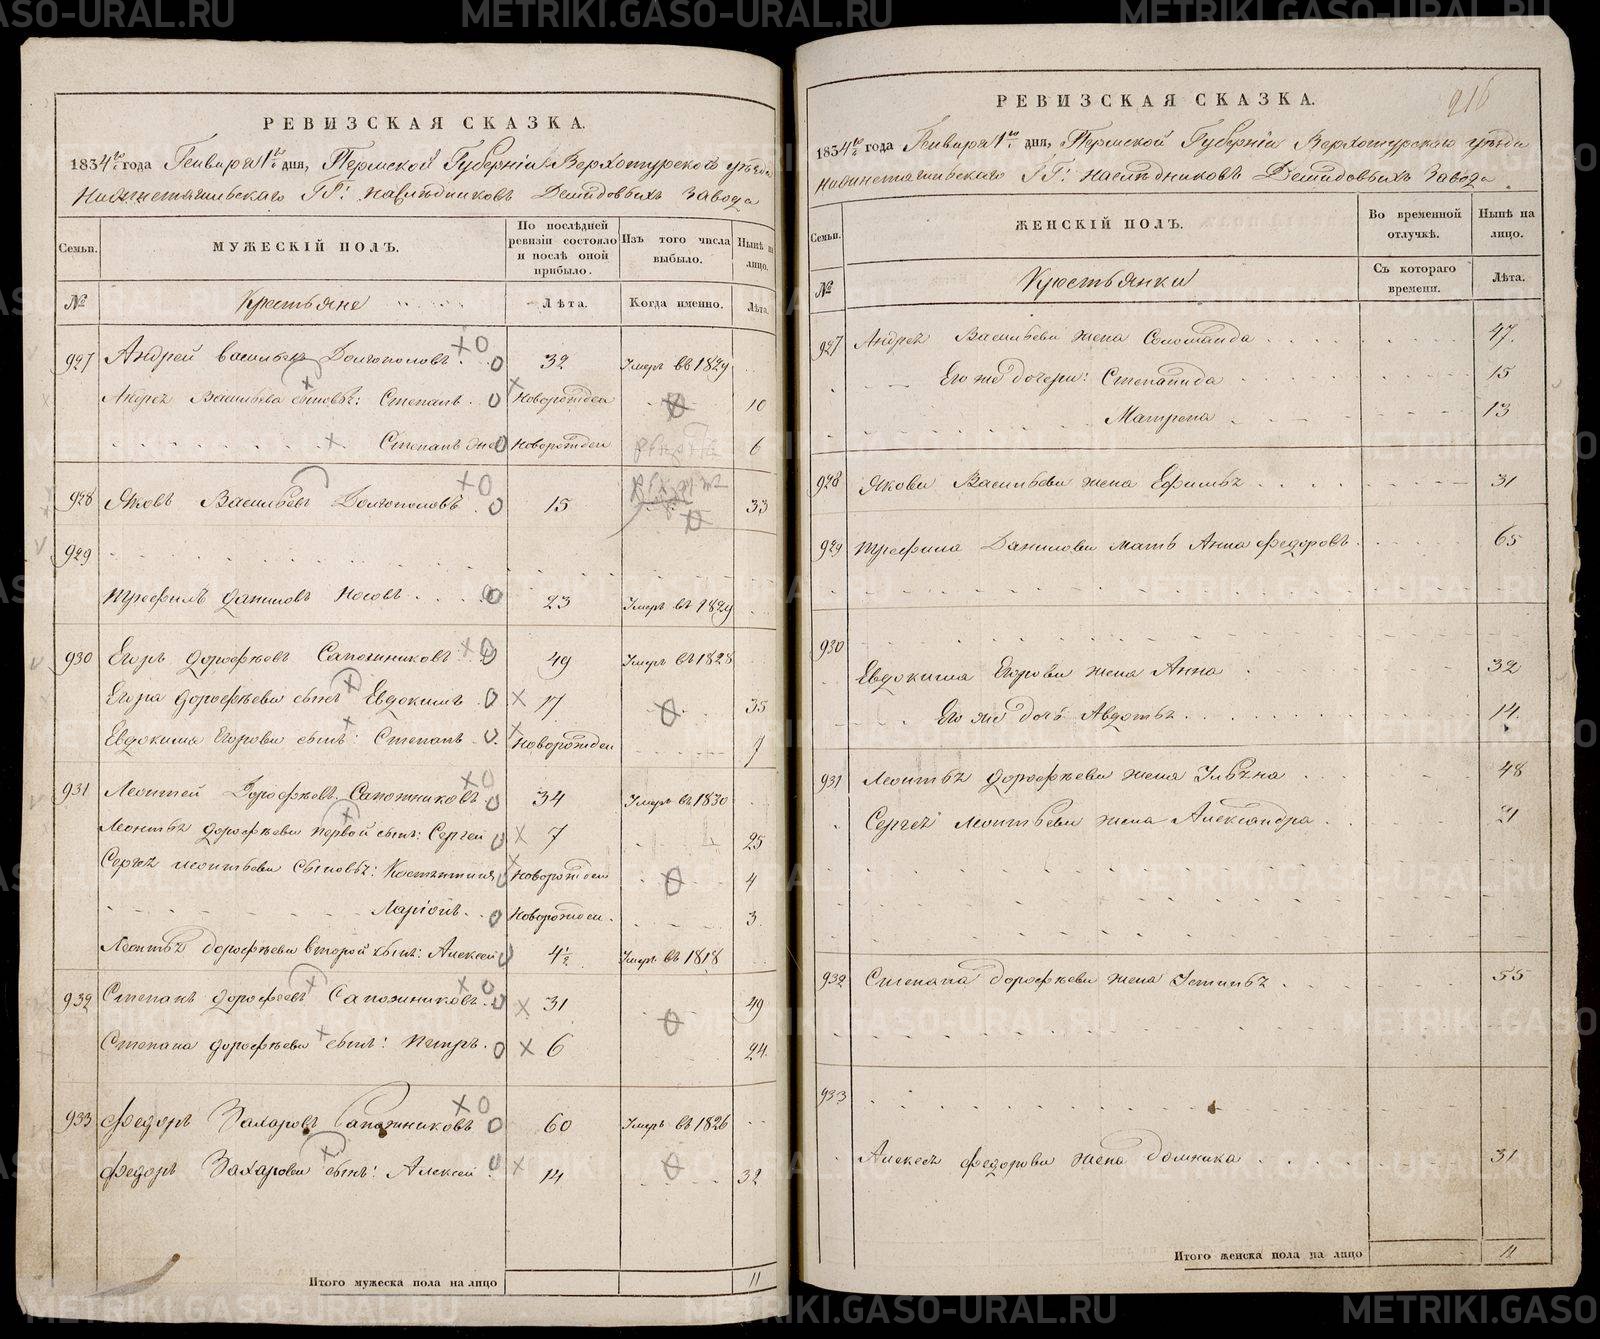 РЕВИЗСКАЯ СКАЗКА.
1834го года Генваря 1го дня, Пермской Губерніи Верхотурскаго уѣзда
Нижнетагильскаго ГГ: наслѣдниковъ Демидовыхъ Завода
Семьи. МУЖЕСКІЙ ПОЛЪ. По послѣдней ревизіи состояло и послѣ оной прибыло. Изъ того числа выбыло. Нынѣ на лицо.
№ Крестьяне Лѣта. Когда именно. Лѣта.
927 Андрей Васильевъ Долгополовъ 32 Умеръ въ 1829
Андрея Васильева сыновья: Степанъ 10 Новорожден
Степанъ же Новорожден 6
928 Яковъ Васильевъ Долгополовъ 15 33
929
Трефилъ Даниловъ Носовъ 23 Умеръ въ 1829
930 Егоръ Дорофѣевъ Сапожниковъ 49 Умеръ въ 1828
Егора Дорофѣева сынъ Евдокимъ 17 35
Евдокима Егорова сынъ: Степанъ Новорожден 9
931 Леонтей Дорофѣевъ Сапожниковъ 34 Умеръ въ 1830
Леонтья Дорофѣева первой сынъ: Сергей 7 25
Сергея Леонтьева сыновья: Костянтинъ Новорожден 4
Ларіонъ Новорожден. 3
Леонтья Дорофѣева второй сынъ: Алексей 4 1/2 Умеръ въ 1818
932 Степанъ Дорофеевъ Сапожниковъ 31 49
Степана Дорофѣева сынъ: Петръ 6 24
933 Федоръ Захаровъ Сапожниковъ 60 Умеръ въ 1826
Федора Захарова сынъ: Алексей 14 32
Итого мужеска пола на лицо 11
216
РЕВИЗСКАЯ СКАЗКА.
1834го года Генваря 1го дня, Пермской Губерніи Верхотурскаго уѣзда
Нижнетагильскаго ГГ: наслѣдниковъ Демидовыхъ Завода
Семьи. ЖЕНСКІЙ ПОЛЪ. Во временной отлучкѣ. Нынѣ на лицо.
№ Крестьянки Съ котораго времени. Лѣта.
927 Андрея Васильева жена Соломанида 47
Его же дочери: Степанида 15
Матрена 13
928 Якова Васильева жена Ефимья 31
929 Трефила Данилова мать Анна Федорова 65
930
Евдокима Егорова жена Анна 32
Его же дочь Авдотья 14
931 Леонтья Дорофѣева жена Ульяна 48
Сергея Леонтьева жена Александра 21
932 Степана Дорофѣева жена Устинья 55
933
Алексея Федорова жена Домника 31
Итого женска пола на лицо 11
METRIKI.GASO-URAL.RU